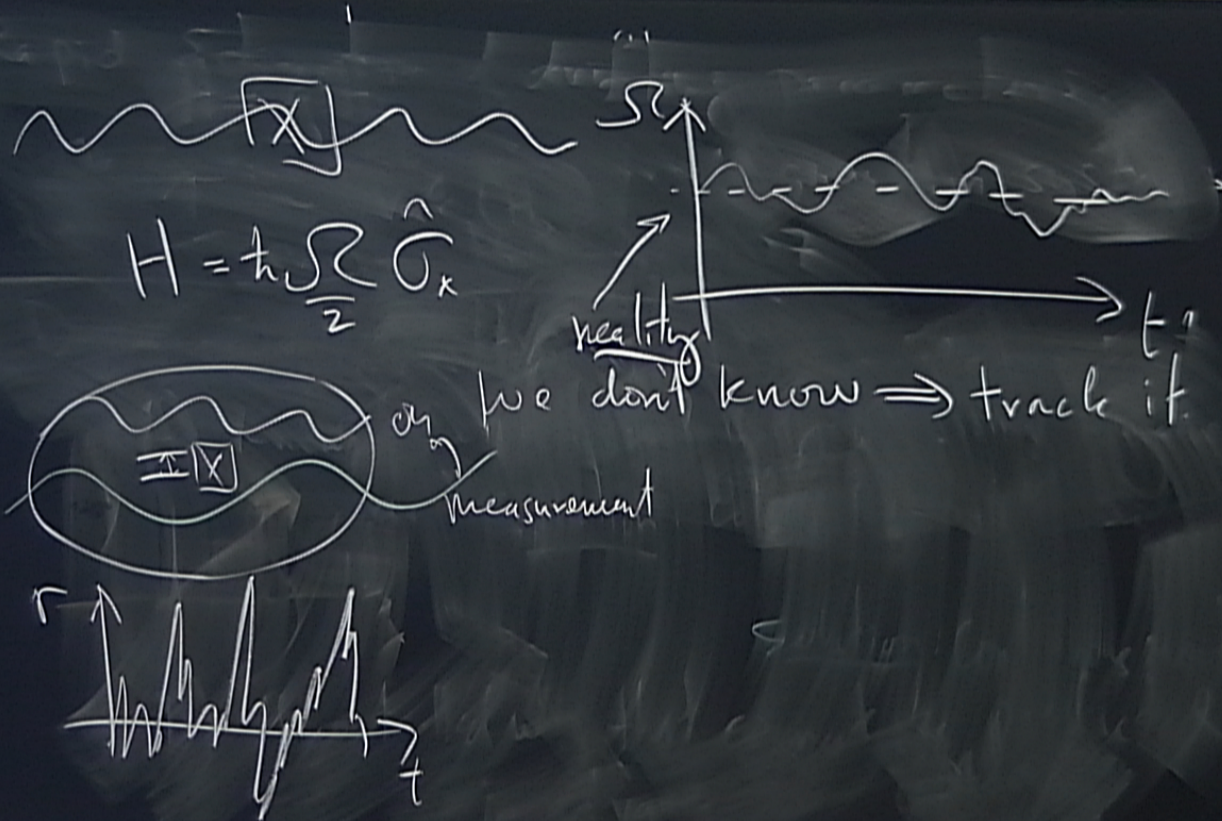 X
Ω
H = ħ Ω/2 σ̂ₓ
t
reality
we don't know ⇒ track it
X
measurement
r
t